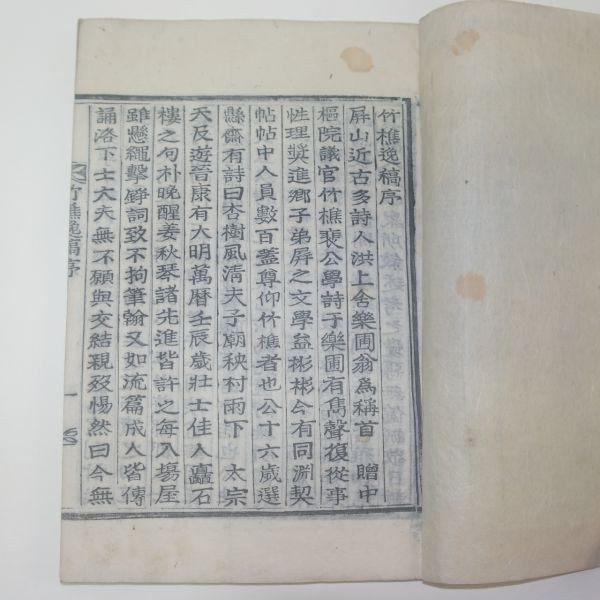 竹樵逸稿序
屏山近古多詩人洪上舍樂圃翁爲稱首 贈中
樞院議官竹樵裴公學詩于樂圃有雋聲復從事
性理奬進鄕子弟屏之文學益彬彬今有同淵契
帖帖中人員數百蓋尊仰竹樵者也公十六歲選
縣齋有詩曰杏樹風清夫子廟秧村雨下 太宗
天及遊晉康有大明萬曆壬辰歲壯士佳人矗石
樓之句朴晩醒姜秋琴諸先進皆許之每入場屋
雖懸繩擊錚詞致不拘筆翰又如流篇成人皆傳
誦洛下士大夫無不願與交結親 惕然曰今無
竹樵逸稿序
一